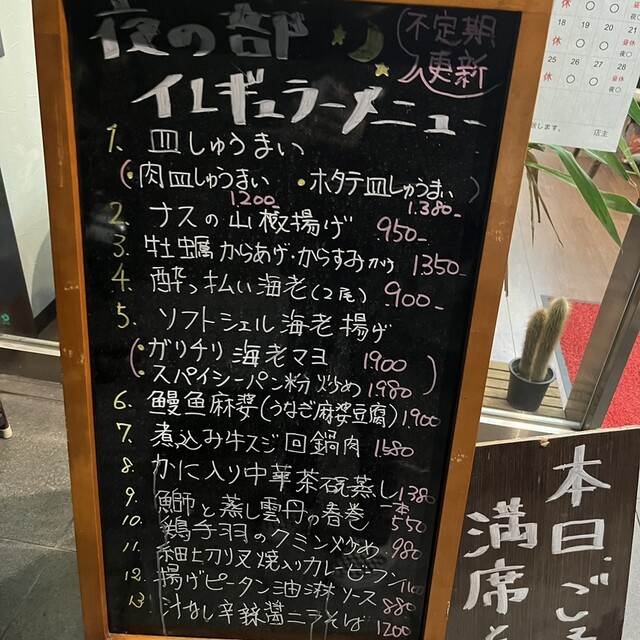 夜の部
(不定期
更新)
イレギュラーメニュー
1. 皿しゅうまい
(・肉皿しゅうまい ・ホタテ皿しゅうまい)
1200- 1.380-
2. ナスの山椒揚げ 950-
3. 牡蠣からあげ・からすみがけ 1350-
4. 酔っ払い海老(2尾) 900-
5. ソフトシェル海老揚げ
(・ガリチリ海老マヨ 1.900
・スパイシーパン粉炒め 1.980)
6. 鰻魚麻婆(うなぎ麻婆豆腐) 1.900
7. 煮込み牛スジ回鍋肉 1580
8. かに入り中華茶碗蒸し 1380
9. 鰤と蒸し雲丹の春巻 一本 550
10. 鶏手羽のクミン炒め 980
11. 細切り叉焼入りカレービーフン
12. 揚げピータン油淋ソース 880
13. 汁なし辛辣醤ニラそば 1200
本日
満席
休 ○ ○ 昼休
18 19 20 21
休 ○ ○ 昼休 夜○
25 26 27 28
休 ○ ○ 昼休 夜○
します。
店主